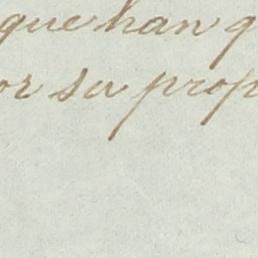 que han q
or su prop